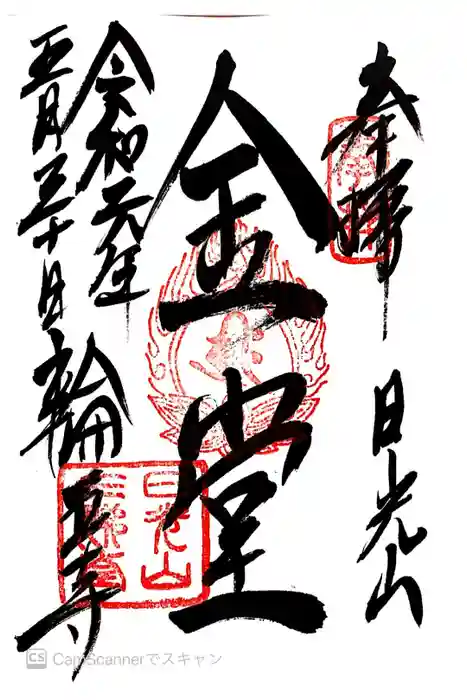 奉拝
日光山
金堂
令和元年
五月三十日
輪王寺
日光山
CS CamScannerでスキャン